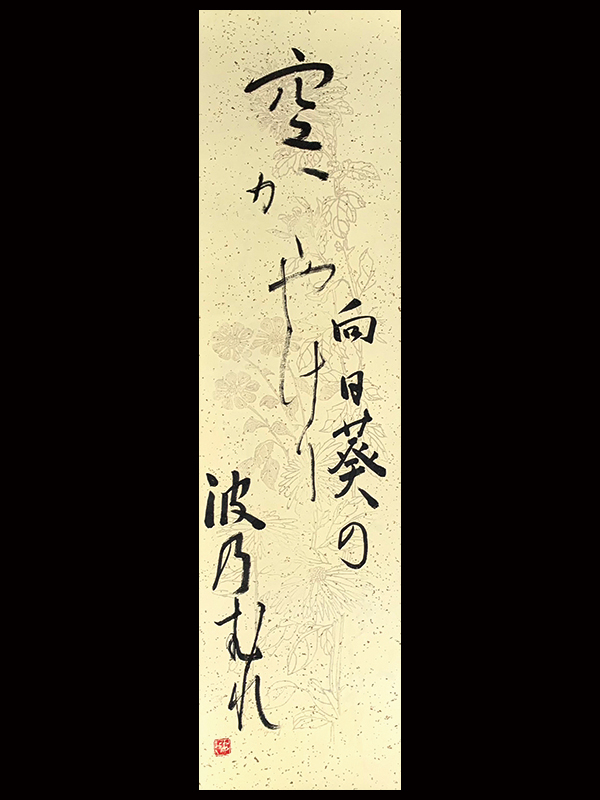 向日葵の
空かゝやけり
波乃むれ